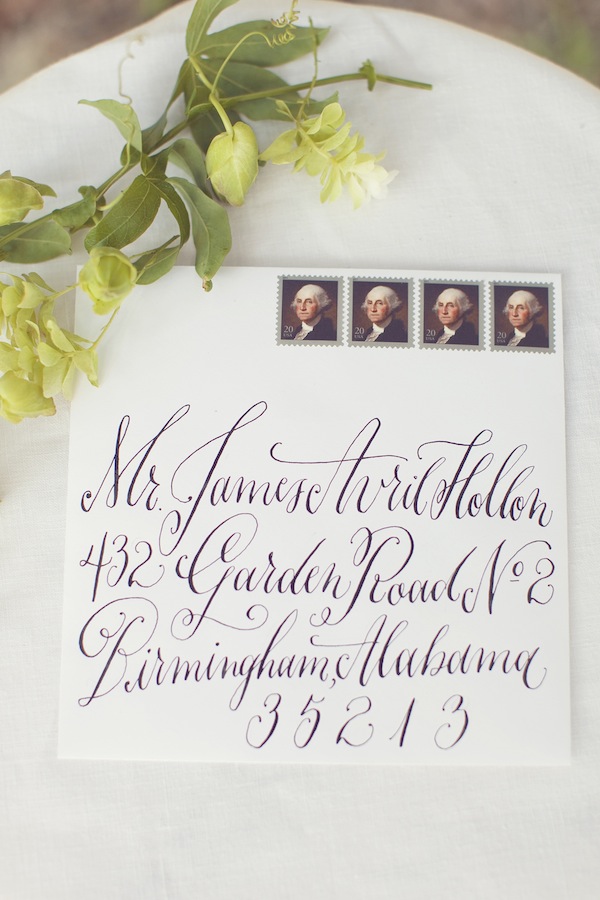 20 USA 20 USA 20 USA 20 USA
Mr. James Avril Hollon
432 Garden Road Nº 2
Birmingham, Alabama
35213